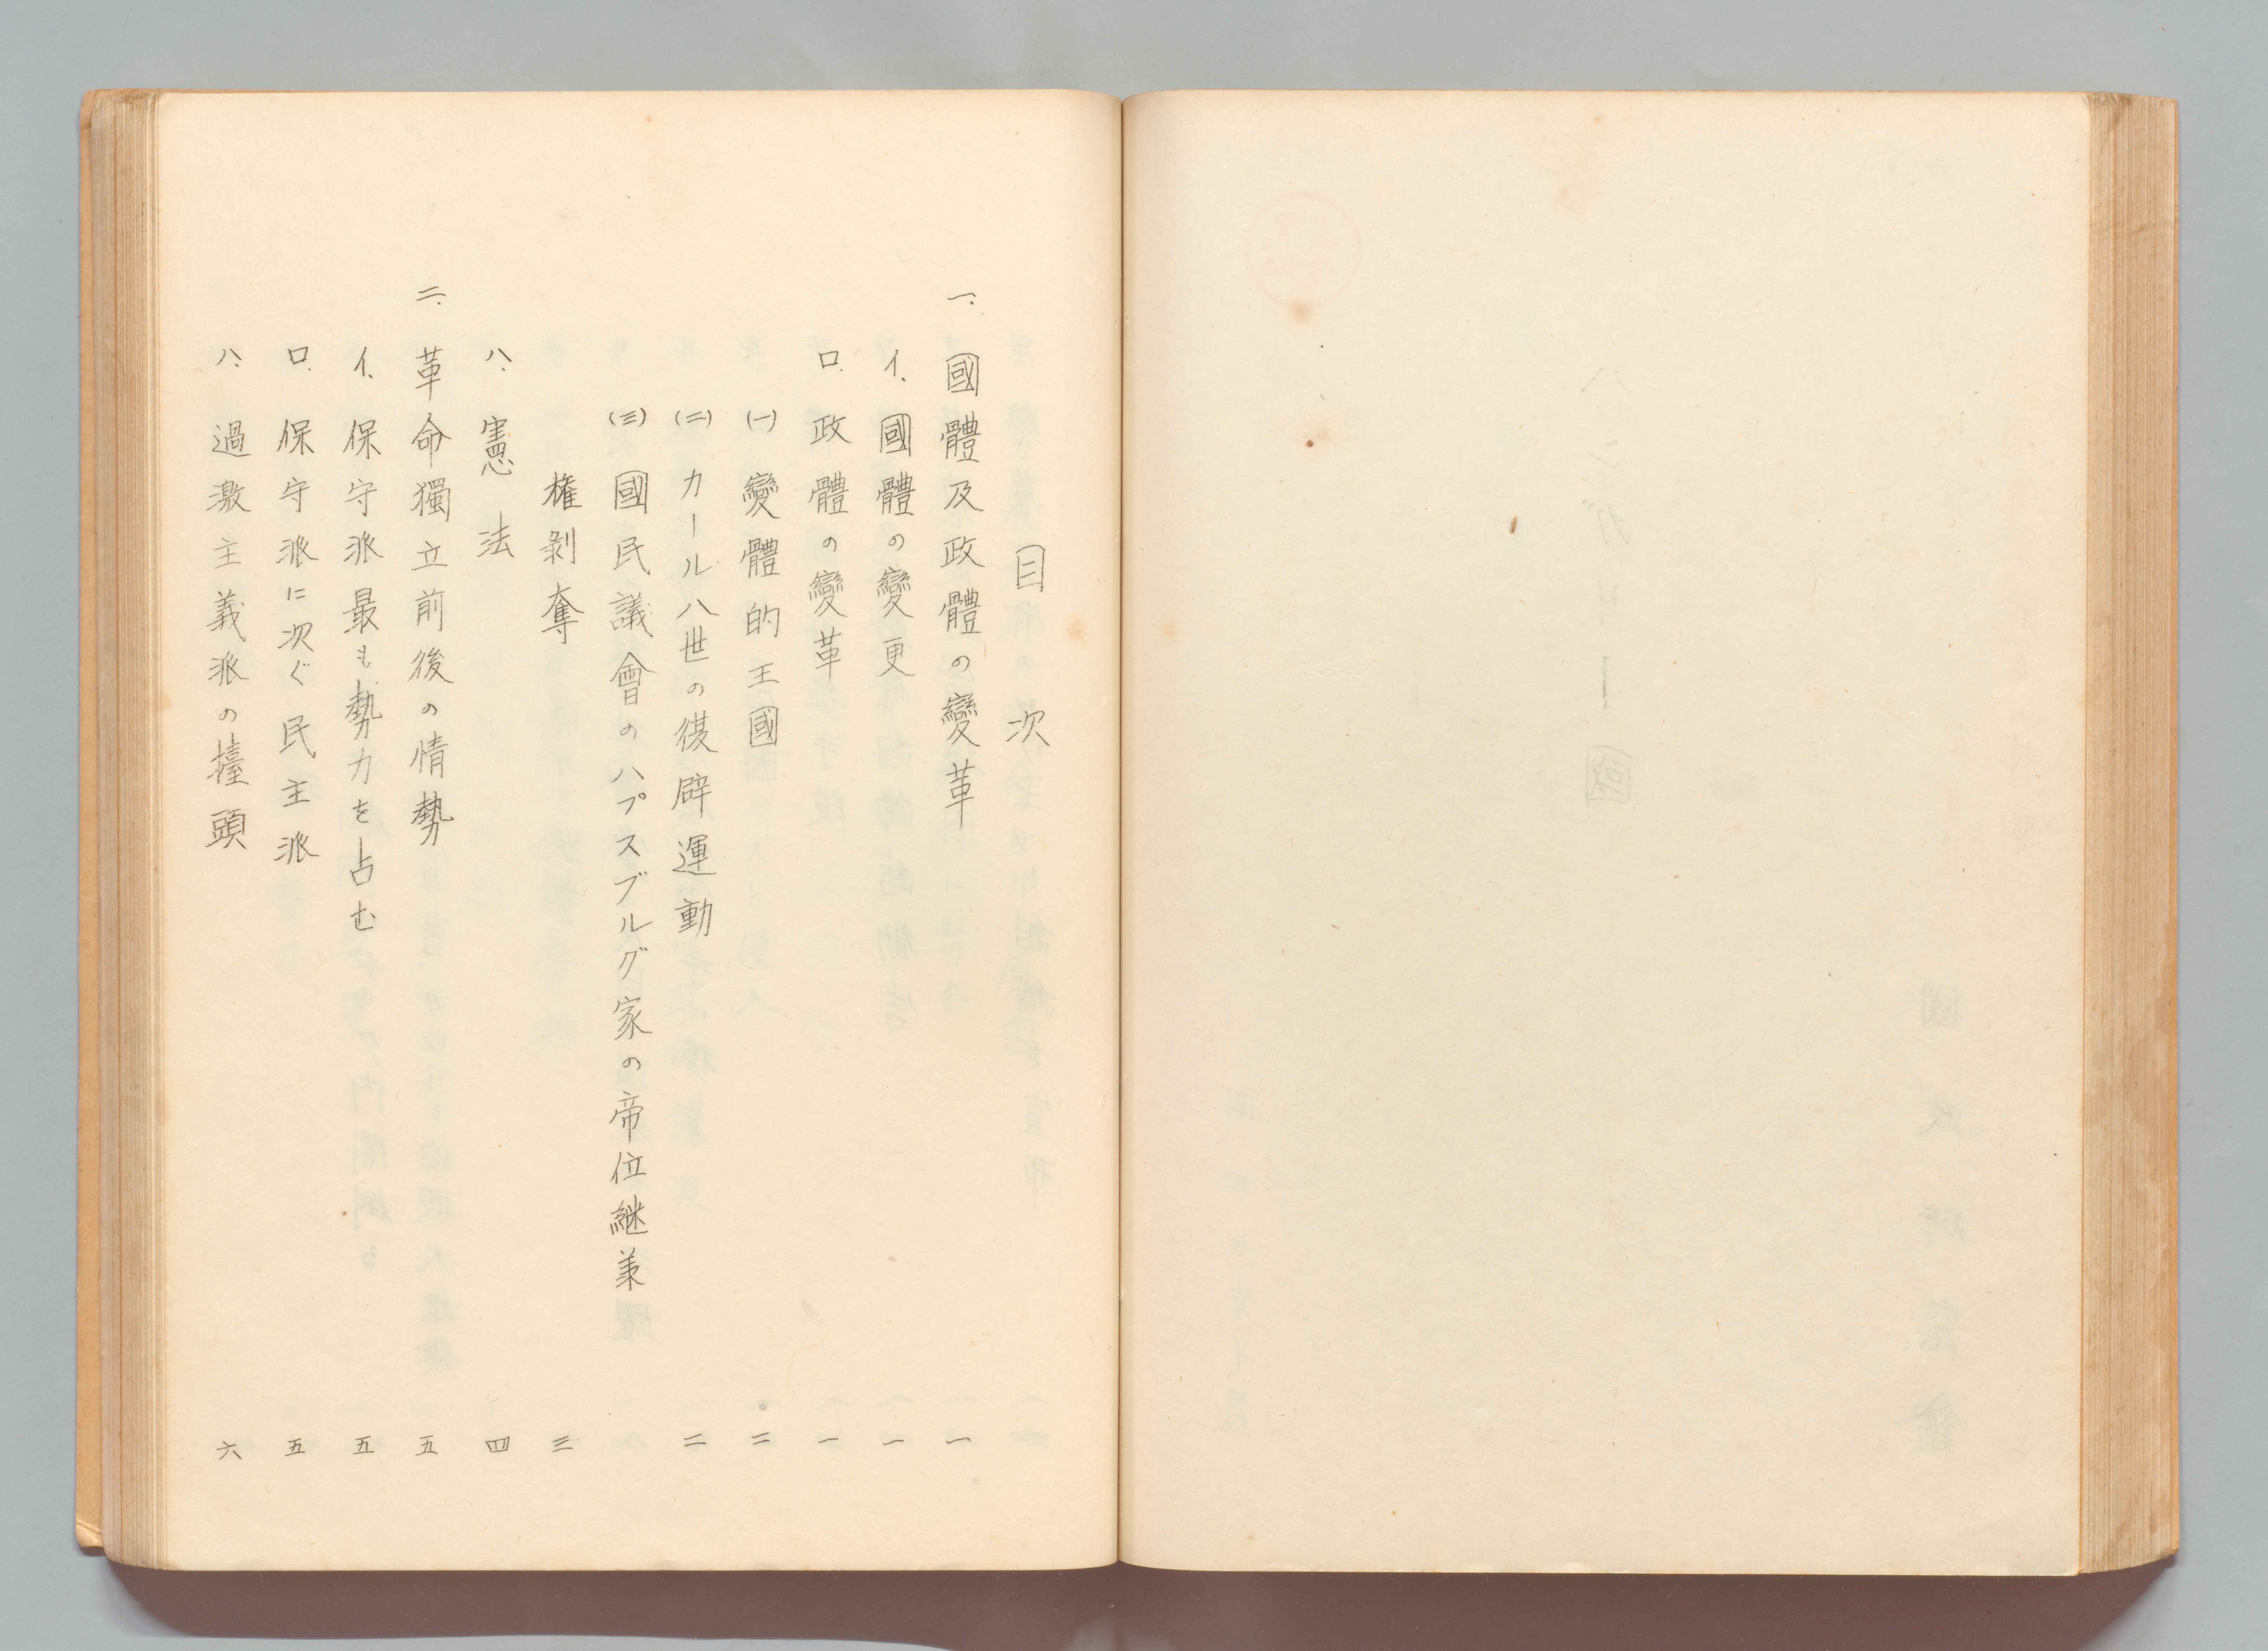 目次
一、國體及政體の變革 一
イ、國體の變更 一
ロ、政體の變革 一
(一)變體的王國 二
(二)カール八世の復辟運動 二
(三)國民議會のハプスブルグ家の帝位継兼
権剥奪 三
ハ、憲法 四
二、革命獨立前後の情勢 五
イ、保守派最も勢力を占む 五
ロ、保守派に次ぐ民主派 五
ハ、過激主義派の擡頭 六